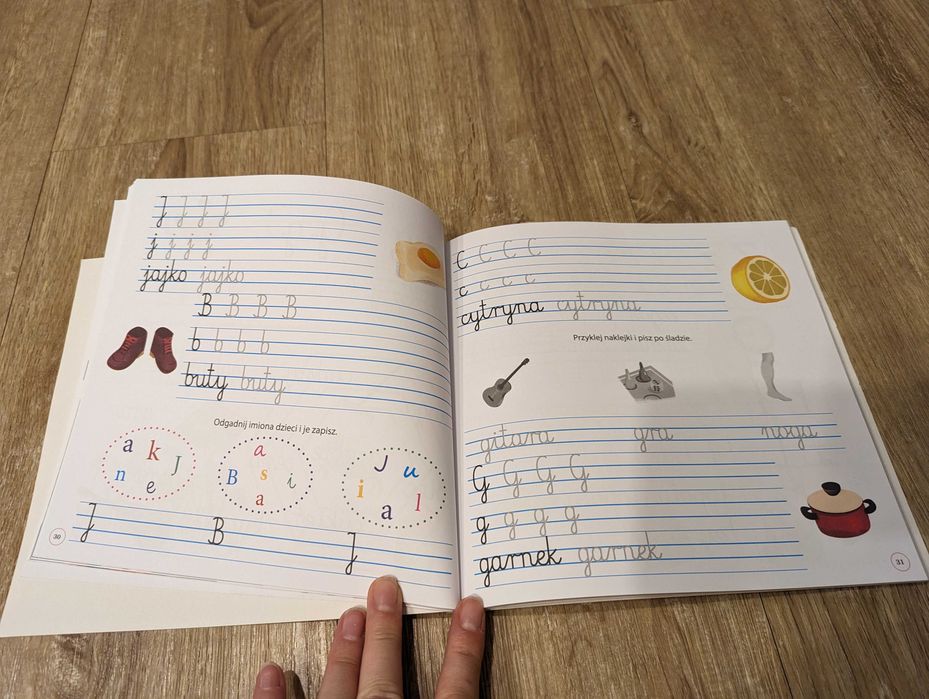 J J J J
j j j j
jajko jajko
B B B B
b b b b
buty buty
Odgadnij imiona dzieci i je zapisz.
a k J n e
a B s i a
J u i a l
J B J
30
C C C C
c c c c
cytryna cytryna
Przyklej naklejki i pisz po śladzie.
gitara gra noga
G G G G
g g g g
garnek garnek
31